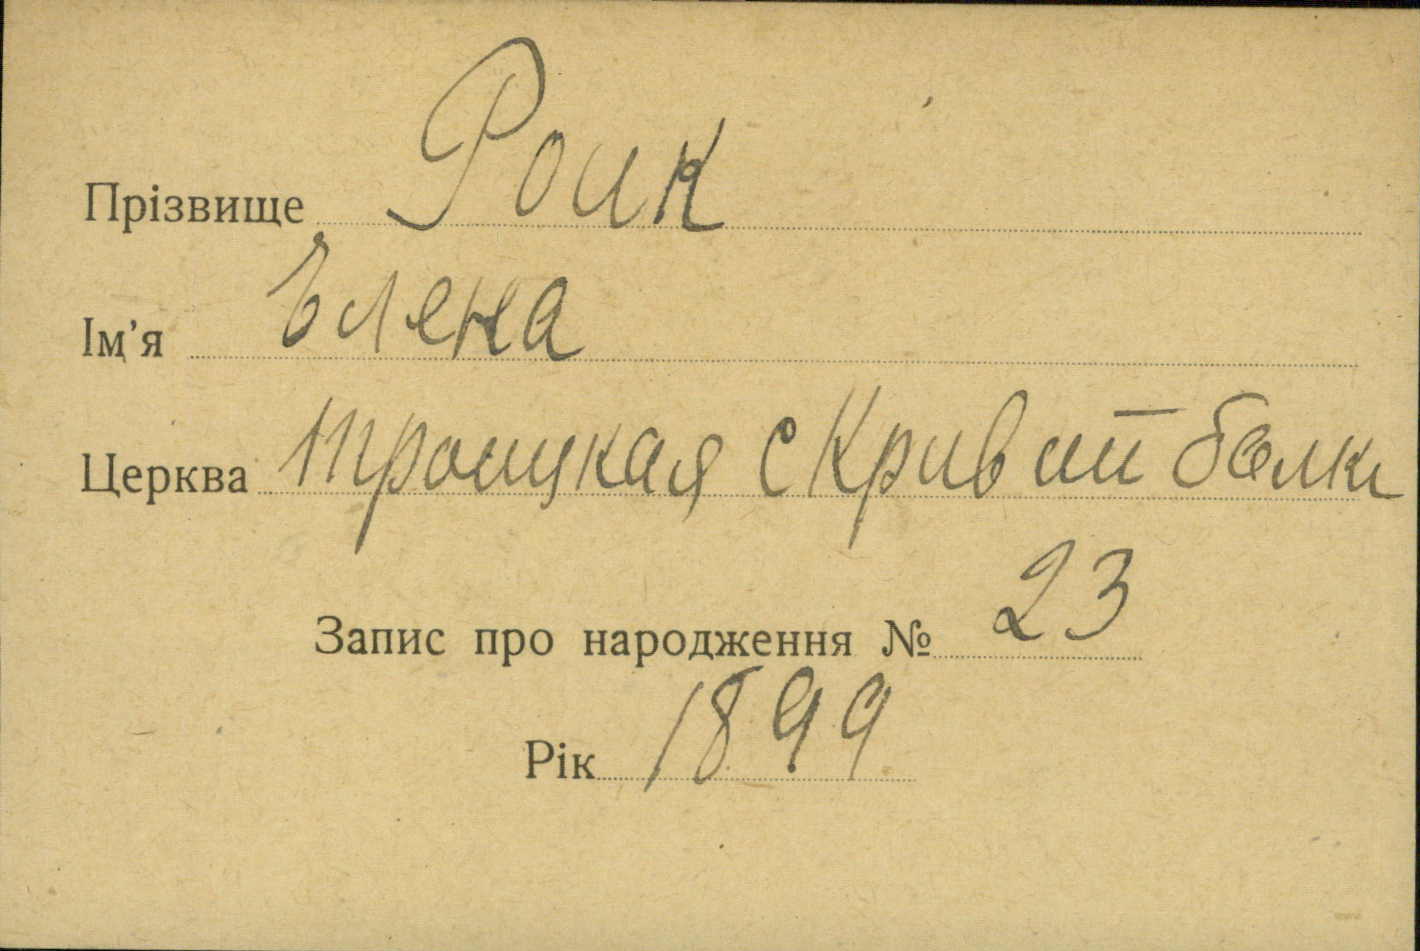 Прізвище Роик
Ім'я Елена
Церква Троицкая с Кривой балки
Запис про народження № 23
Рік 1899